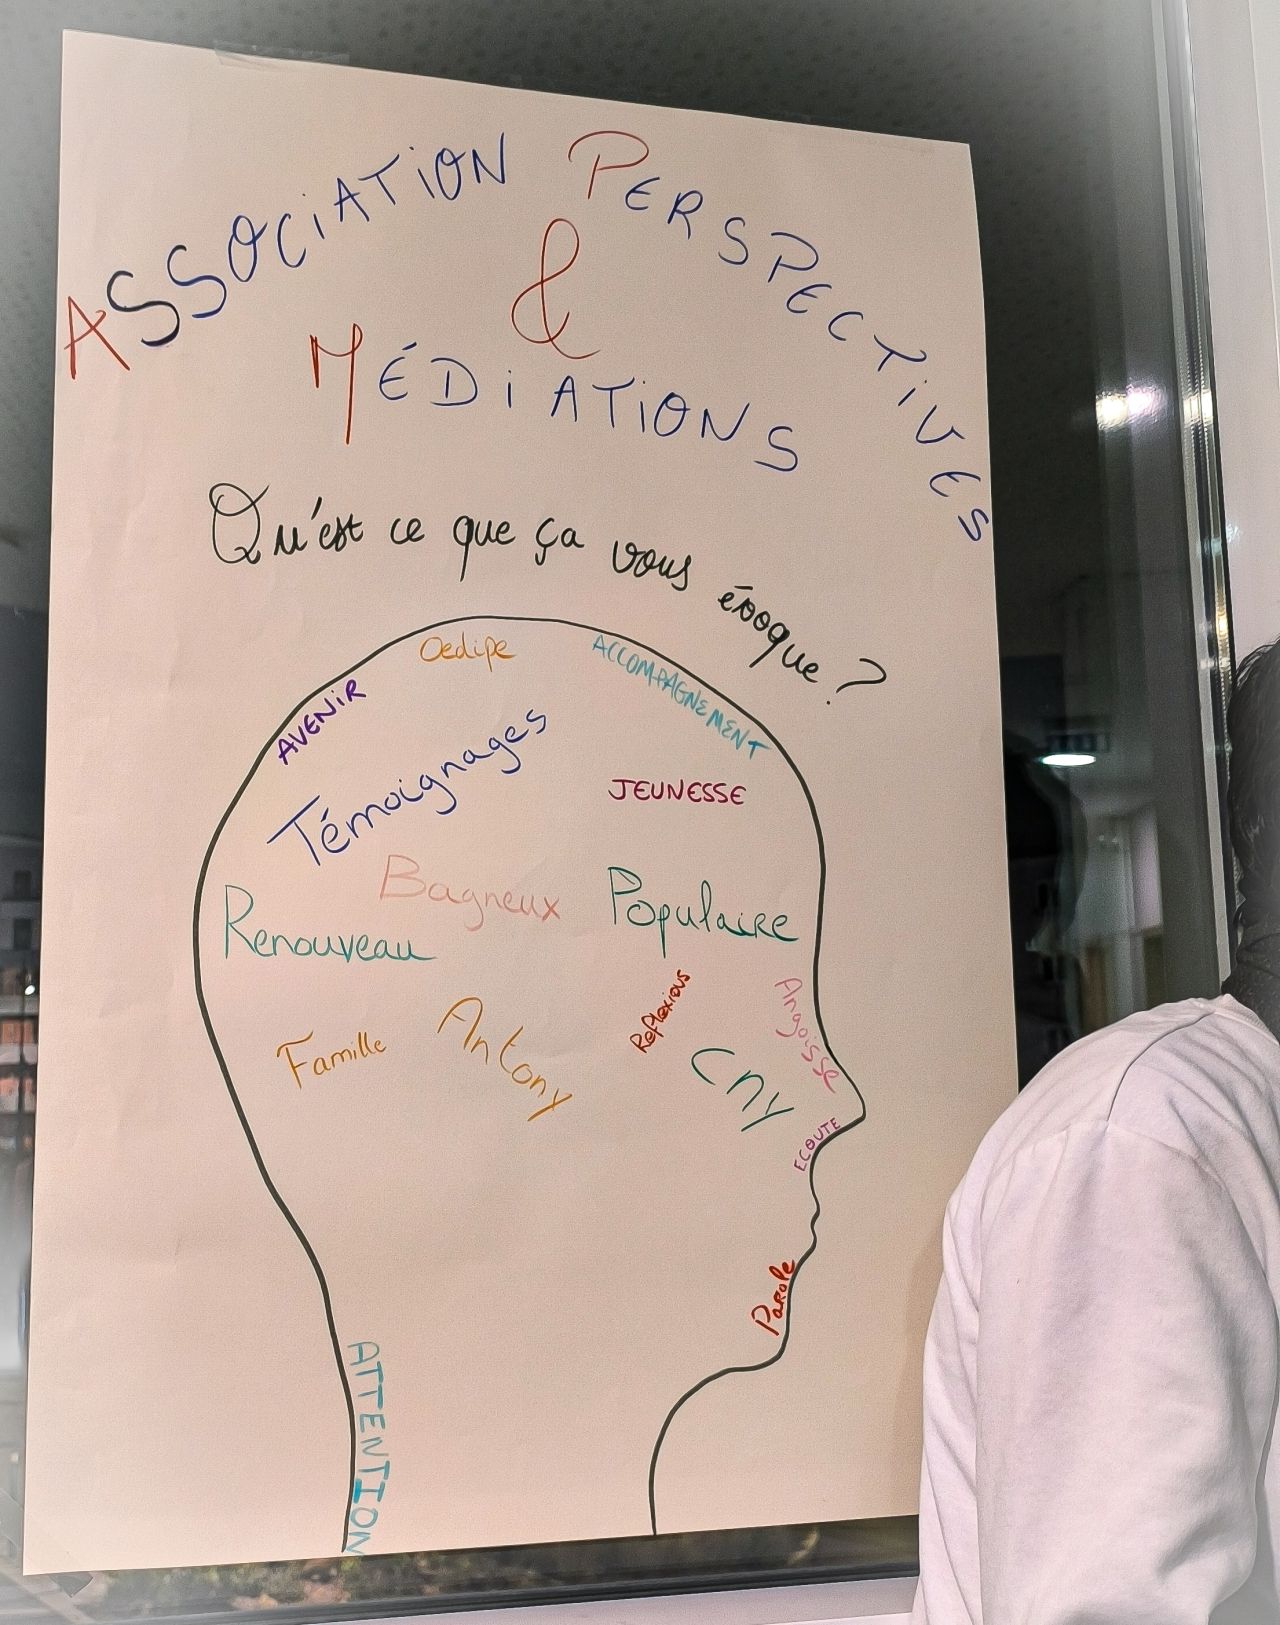 ASSOCIATION PERSPECTIVES
&
MÉDIATIONS
Qu'est ce que ça vous évoque ?
Oedipe
ACCOMPAGNEMENT
AVENIR
Témoignages
JEUNESSE
Bagneux
Populaire
Renouveau
Réflexions
Angoisse
Famille
Antony
CNY
ECOUTE
Parole
ATTENTION